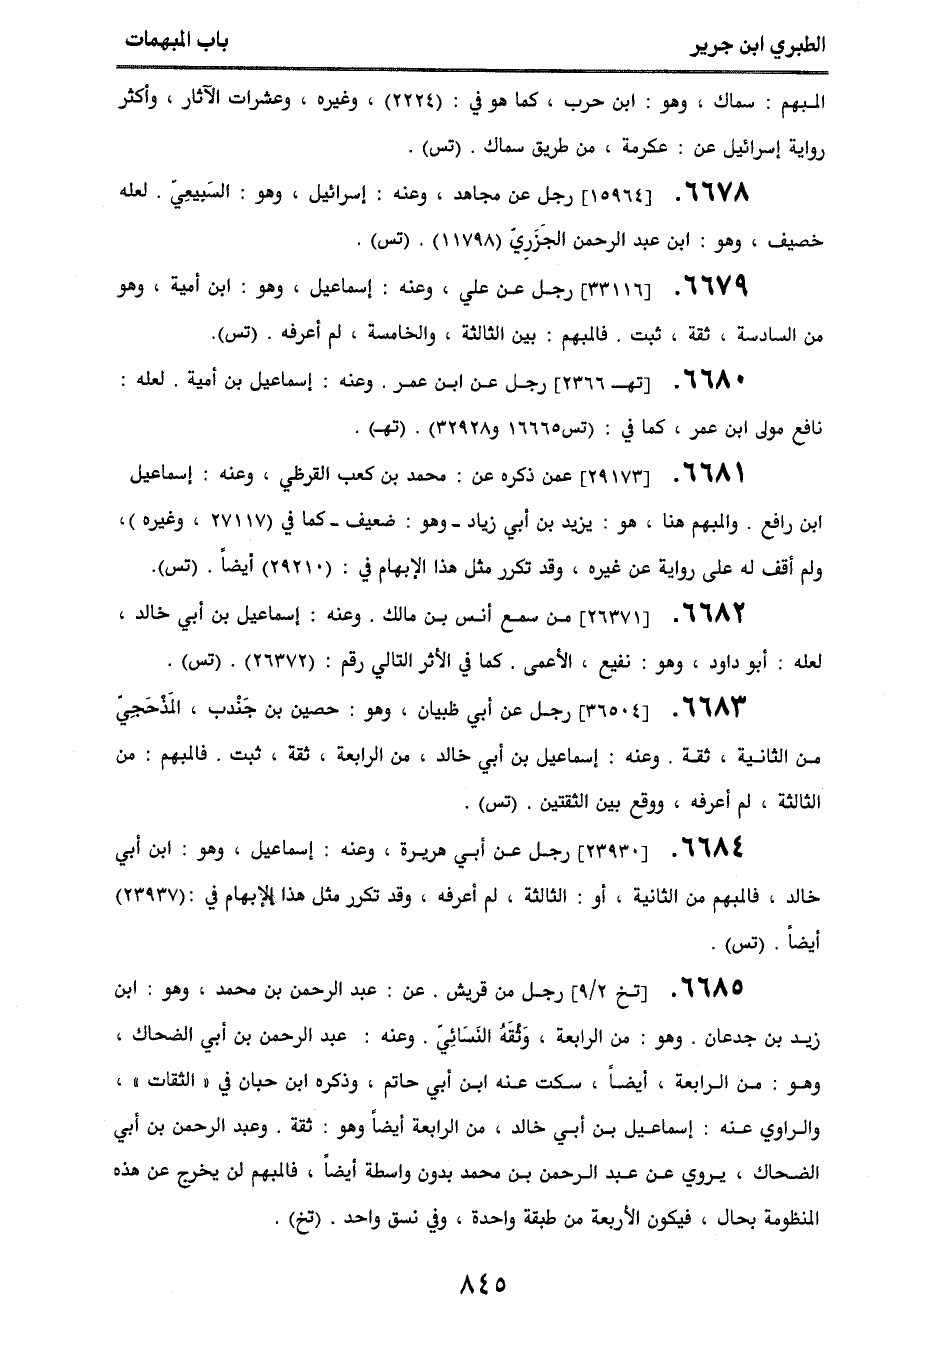 الطبري ابن جرير
باب المبهمات
المبهم : سماك ، وهو : ابن حرب ، كما هو في : (٢٢٢٤) ، وغيره ، وعشرات الآثار ، وأكثر
رواية إسرائيل عن : عكرمة ، من طريق سماك . (تس) .
٦٦٧٨. [١٥٩٦٤] رجل عن مجاهد ، وعنه : إسرائيل ، وهو : السَبيعِيّ . لعله
خصيف ، وهو : ابن عبد الرحمن الجَزَرِيّ (١١٧٩٨) . (تس) .
٦٦٧٩. [٣٣١١٦] رجل عن علي ، وعنه : إسماعيل ، وهو : ابن أمية ، وهو
من السادسة ، ثقة ، ثبت . فالمبهم : بين الثالثة ، والخامسة ، لم أعرفه . (تس).
٦٦٨٠. [تهـ ٢٣٦٦] رجل عن ابن عمر . وعنه : إسماعيل بن أمية . لعله :
نافع مولى ابن عمر ، كما في : (تس١٦٦٦٥ و٣٢٩٢٨) . (تهـ) .
٦٦٨١. [٢٩١٧٣] عمن ذكره عن : محمد بن كعب القرظي ، وعنه : إسماعيل
ابن رافع . والمبهم هنا ، هو : يزيد بن أبي زياد ـ وهو : ضعيف ـ كما في (٢٧١١٧ ، وغيره )،
ولم أقف له على رواية عن غيره ، وقد تكرر مثل هذا الإبهام في : (٢٩٢١٠) أيضاً . (تس).
٦٦٨٢. [٢٦٣٧١] من سمع أنس بن مالك . وعنه : إسماعيل بن أبي خالد ،
لعله : أبو داود ، وهو : نفيع ، الأعمى . كما في الأثر التالي رقم : (٢٦٣٧٢) . (تس) .
٦٦٨٣. [٣٦٥٠٤] رجل عن أبي ظبيان ، وهو : حصين بن جَنْدب ، المَذْحَجيّ
من الثانية ، ثقة . وعنه : إسماعيل بن أبي خالد ، من الرابعة ، ثقة ، ثبت . فالمبهم : من
الثالثة ، لم أعرفه ، ووقع بين الثقتين . (تس) .
٦٦٨٤. [٢٣٩٣٠] رجل عن أبي هريرة ، وعنه : إسماعيل ، وهو : ابن أبي
خالد ، فالمبهم من الثانية ، أو : الثالثة ، لم أعرفه ، وقد تكرر مثل هذا الإبهام في :(٢٣٩٣٧)
أيضاً . (تس) .
٦٦٨٥. [تخ ٩/٢] رجل من قريش . عن : عبد الرحمن بن محمد ، وهو : ابن
زيد بن جدعان . وهو : من الرابعة ، وَثَّقَهُ النَسَائِيّ . وعنه : عبد الرحمن بن أبي الضحاك ،
وهو : من الرابعة ، أيضاً ، سكت عنه ابن أبي حاتم ، وذكره ابن حبان في « الثقات » ،
والراوي عنه : إسماعيل بن أبي خالد ، من الرابعة أيضاً وهو : ثقة . وعبد الرحمن بن أبي
الضحاك ، يروي عن عبد الرحمن بن محمد بدون واسطة أيضاً ، فالمبهم لن يخرج عن هذه
المنظومة بحال ، فيكون الأربعة من طبقة واحدة ، وفي نسق واحد . (تخ) .
٨٤٥